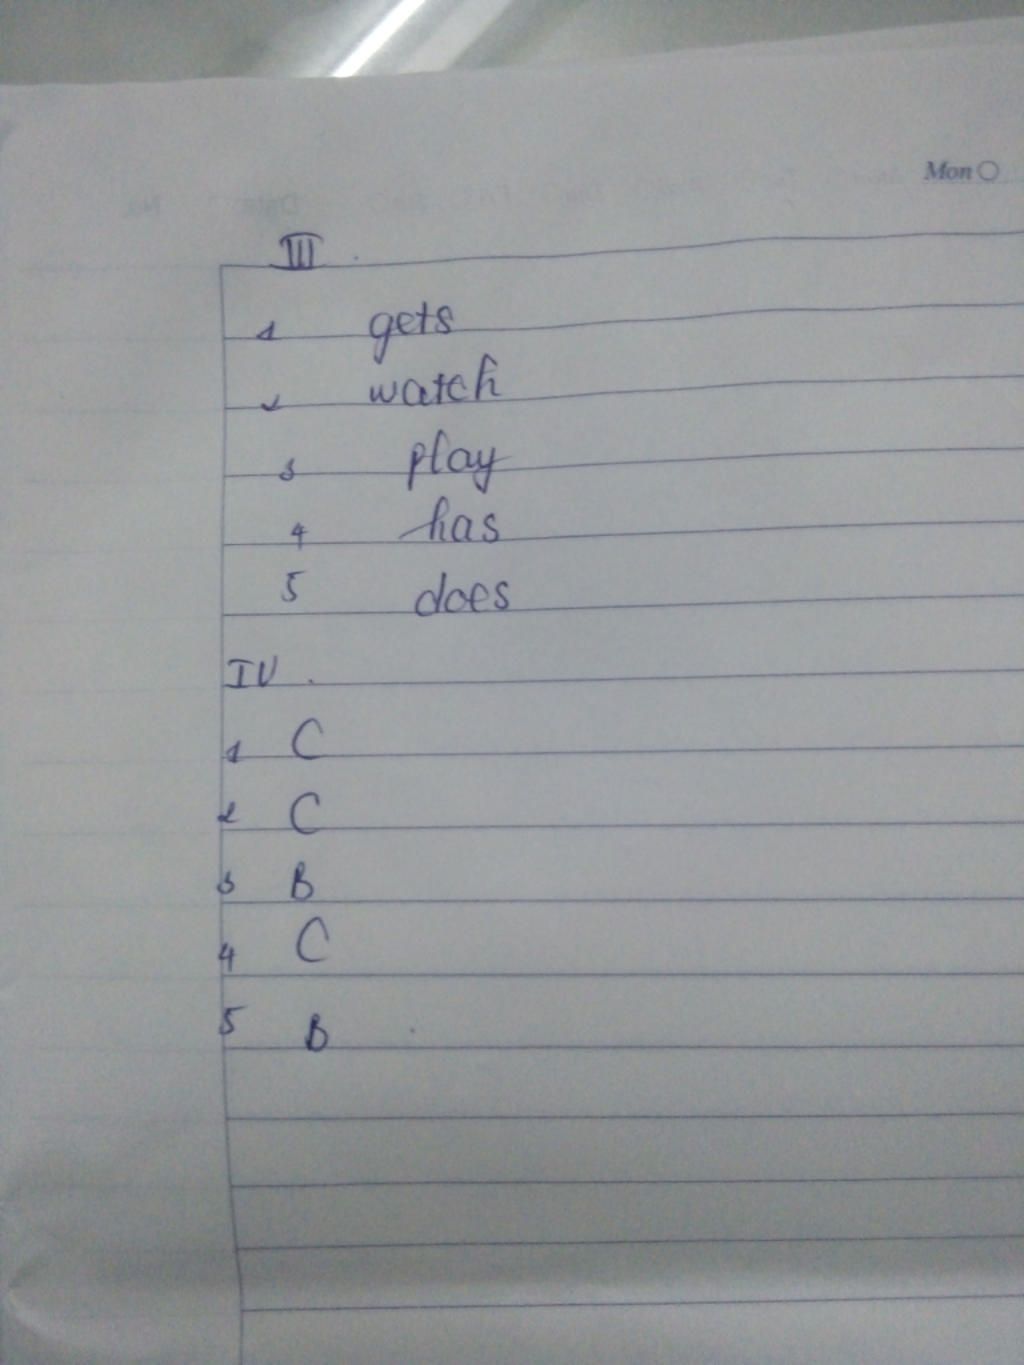 Mon
III .
1 gets
2 watch
3 play
4 has
5 does
IV .
1 C
2 C
3 B
4 C
5 B .